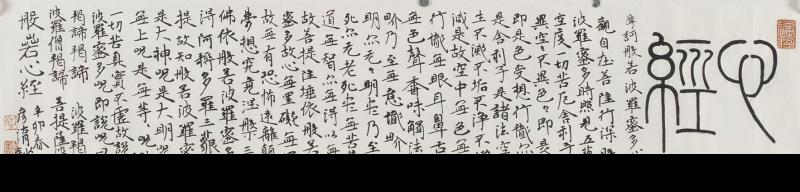 心經
摩訶般若波羅蜜多
觀自在菩薩行深
波羅蜜多時照見五
空度一切苦厄舍利子
異空空不異色色即是
即是色受想行識
是舍利子是諸法空
生不滅不垢不淨不
減是故空中無色無
行識無眼耳鼻舌
無色聲香味觸法
界乃至無意識界
明亦無無明盡乃至
死亦無老死盡無苦
道無智亦無得以無
故菩提薩埵依般若
蜜多故心無罣礙無
故無有恐怖遠離顛
夢想究竟涅槃三
佛依般若波羅蜜多
得阿耨多羅三藐
提故知般若波羅蜜
是大神咒是大明咒
無上咒是無等咒
一切苦真實不虛故說
波羅蜜多咒即說咒曰
揭諦揭諦 波羅揭
波羅僧揭諦 菩提薩
般若心經 辛卯春